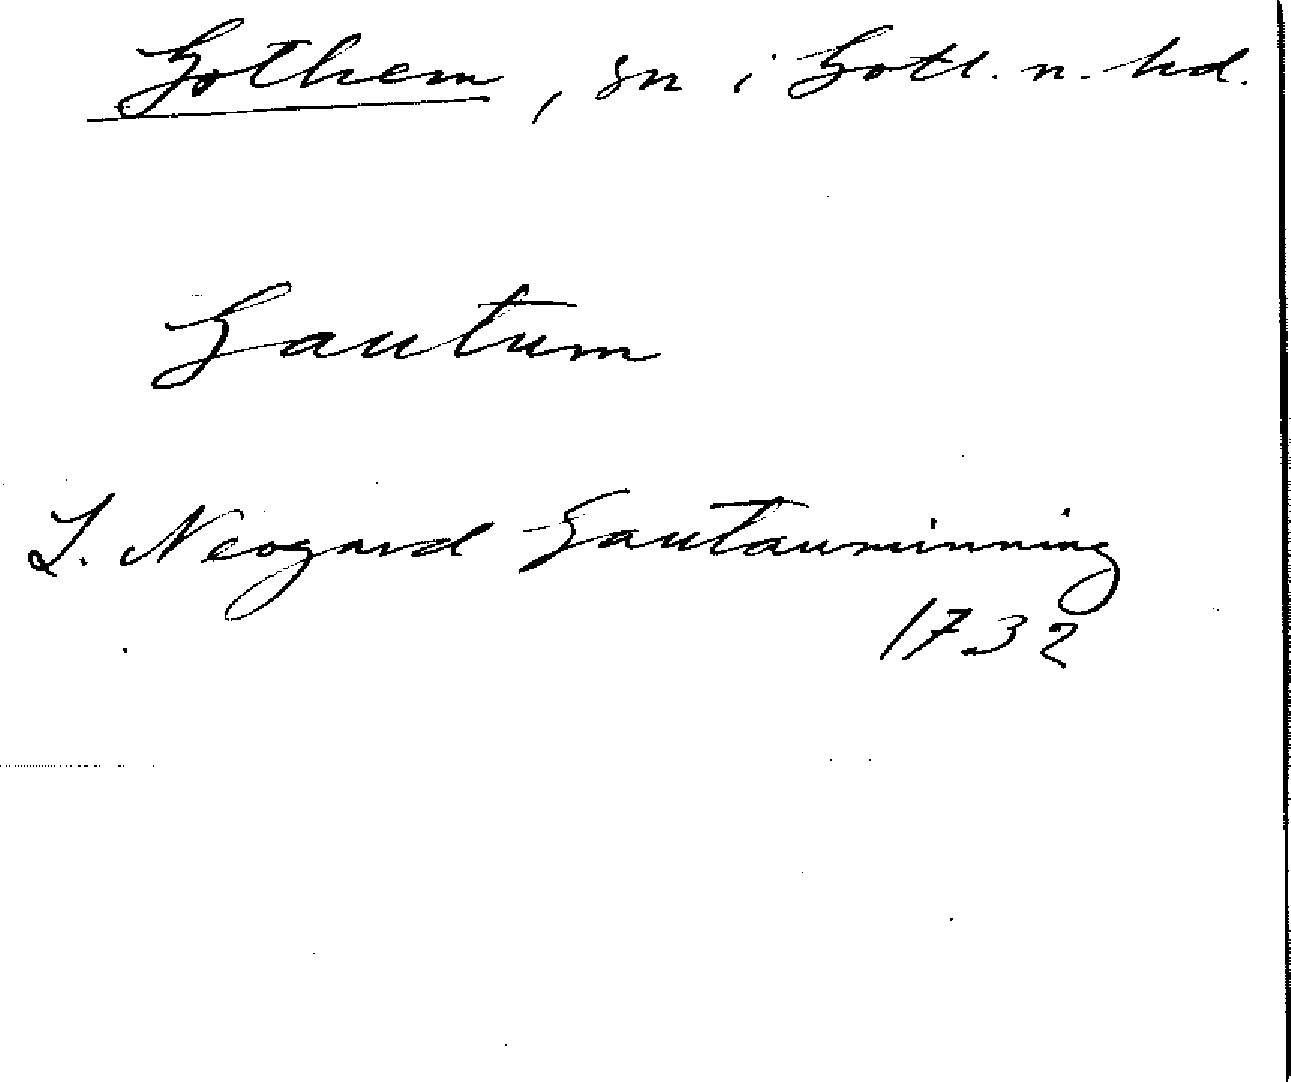 Gothem, sn i Gotl. n. hd.
Gautum
J. Neogard Gautauminning
1732